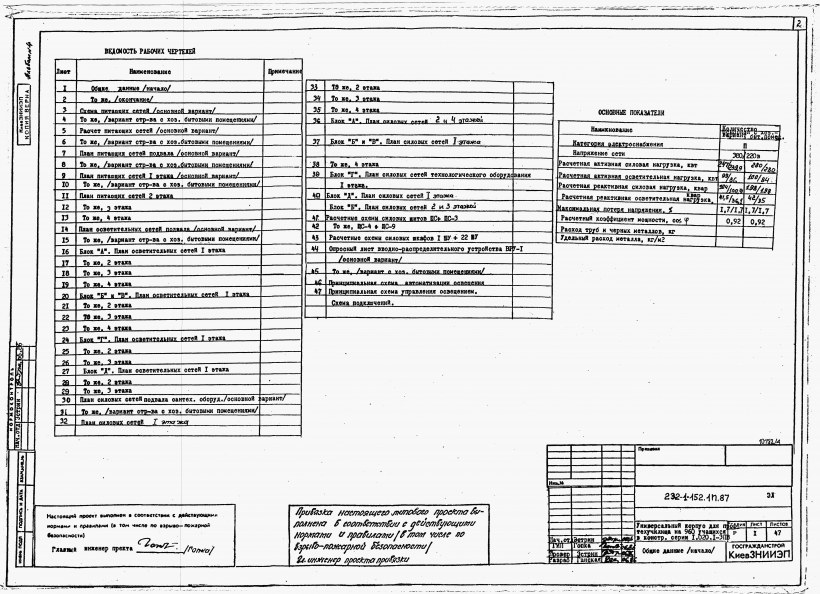 2
КиевЗНИИЭП
КОПИЯ ВЕРНА
ВЕДОМОСТЬ РАБОЧИХ ЧЕРТЕЖЕЙ
Лист Наименование Примечание
1 Общие данные /начало/
2 То же. /окончание/
3 Схема питающих сетей /основной вариант/
4 То же, /вариант стр-ва с хоз. бытовыми помещениями/
5 Расчет питающих сетей /основной вариант/
6 То же, /вариант стр-ва с хоз.бытовыми помещениями/
7 План питающих сетей подвала /основной вариант/
8 То же, /вариант стр-ва с хоз. бытовыми помещениями/
9 План питающих сетей I этажа /основной вариант/
10 То же, /вариант стр-ва с хоз. бытовыми помещениями/
11 План питающих сетей 2 этажа
12 То же, 3 этажа
13 То же, 4 этажа
14 План осветительных сетей подвала /основной вариант/
15 То же, /вариант стр-ва с хоз. бытовыми помещениями/
16 Блок "А". План осветительных сетей I этажа
17 То же, 2 этажа
18 То же, 3 этажа
19 То же, 4 этажа
20 Блок "Б" и "В". План осветительных сетей I этажа
21 То же, 2 этажа
22 То же, 3 этажа
23 То же, 4 этажа
24 Блок "Г". План осветительных сетей I этажа
25 То же, 2 этажа
26 То же, 3 этажа
27 Блок "Д". План осветительных сетей I этажа
28 То же, 2 этажа
29 То же, 3 этажа
30 План силовых сетей подвала сантех. оборуд./основной вариант/
31 То же, /вариант стр-ва с хоз. бытовыми помещениями/
32 План силовых сетей I этажа
33 То же, 2 этажа
34 То же, 3 этажа
35 То же, 4 этажа
36 Блок "А". План силовых сетей 2 и 4 этажей
37 Блок "Б" и "В". План силовых сетей I этажа
38 То же, 4 этажа
39 Блок "Г". План силовых сетей технологического оборудования
I этажа.
40 Блок "Д". План силовых сетей I этажа
План силовых сетей 2 и 3 этажей
41 Расчетные схемы силовых щитов
42 То же,
43 Расчетные схемы силовых шкафов I ШУ + 22 ШУ
44 Опросный лист вводно-распределительного устройства ВРУ-I
/основной вариант/
45 То же, /вариант с хоз. бытовыми помещениями/
46 Принципиальная схема автоматизации освещения
47 Принципиальная схема управления освещением.
Схема подключений.
ОСНОВНЫЕ ПОКАЗАТЕЛИ
Наименование Количество
Категория электроснабжения II
Напряжение сети 380/220в
Расчетная активная силовая нагрузка, квт
Расчетная активная осветительная нагрузка, квт
Расчетная реактивная силовая нагрузка, квар
Расчетная реактивная осветительная нагрузка, квар
Максимальная потеря напряжения, % 1,7/1,7 1,7/1,7
Расчетный коэффициент мощности, cos φ 0,92 0,92
Расход труб и черных металлов, кг
Удельный расход металла, кг/м2
Настоящий проект выполнен в соответствии с действующими
нормами и правилами (в том числе по взрыво-пожарной
безопасности)
Главный инженер проекта
Привязка настоящего типового проекта вы-
полнена в соответствии с действующими
нормами и правилами /в том числе по
взрыво-пожарной безопасности/
Гл. инженер проекта привязки
Привязан
Инв.№
232-1-152.1п.87 ЭЛ
Универсальный корпус для
техучилища на 960 учащихся
в констр. серии
Стадия Лист Листов
Р I 47
Общие данные /начало/
ГОСГРАЖДАНСТРОЙ
КиевЗНИИЭП
Нач.от. Эстрин
ГИП
Провер Эстрин
Разраб
НОРМОКОНТРОЛЬ